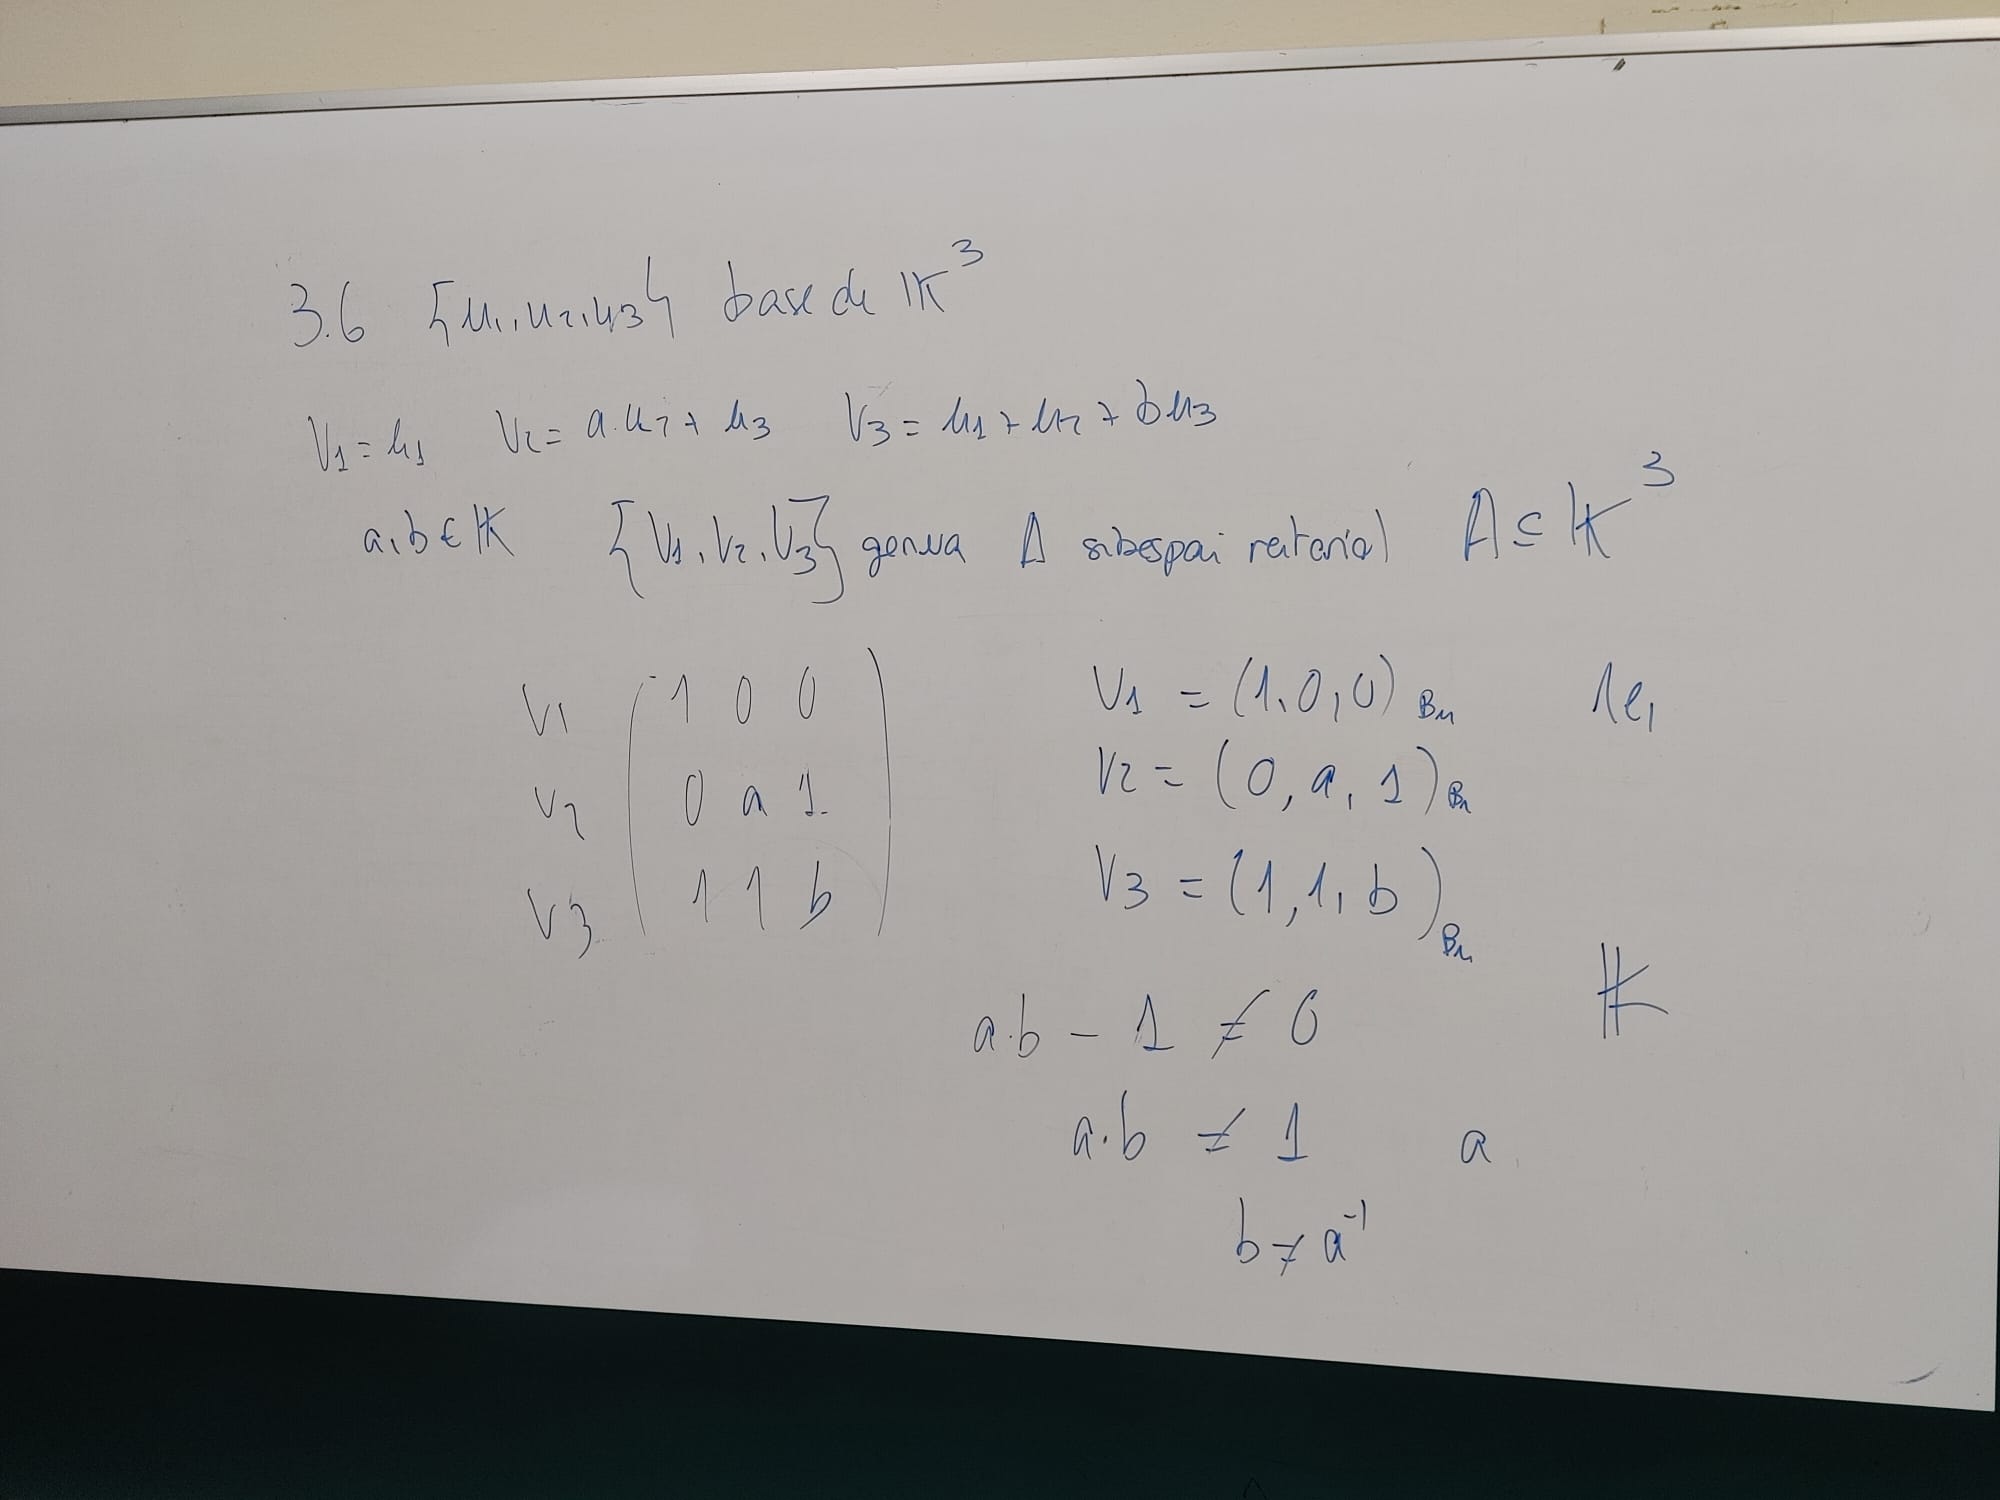 3.6 {u1, u2, u3} base de 𝕂³
V1 = u1 V2 = a·u2 + u3 V3 = u1 + u2 + bu3
a, b ∈ 𝕂 {V1, V2, V3} genera A subespai vectorial A ⊆ 𝕂³
V1 ( 1 0 0 )
V2 ( 0 a 1 )
V3 ( 1 1 b )
V1 = (1, 0, 0)Bu 1e1
V2 = (0, a, 1)Bu
V3 = (1, 1, b)Bu
𝕂
a·b - 1 ≠ 0
a·b ≠ 1 a
b ≠ a⁻¹